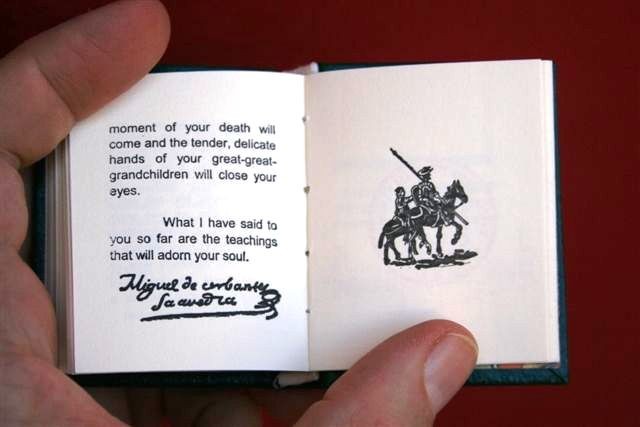 moment of your death will
come and the tender, delicate
hands of your great-great-
grandchildren will close your
eyes.
What I have said to
you so far are the teachings
that will adorn your soul.
Miguel de cerbantes
Saavedra